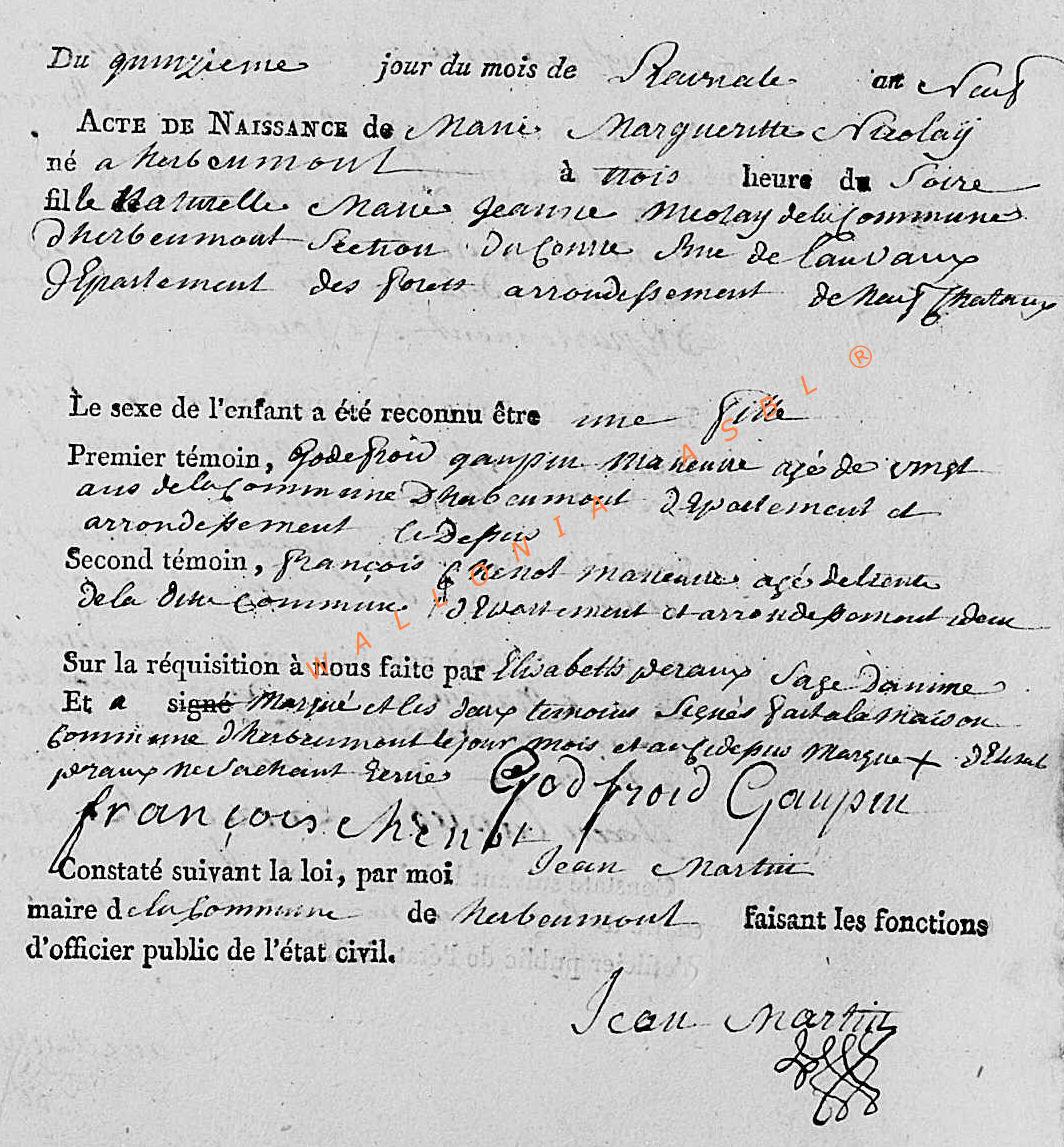 Du quinzieme jour du mois de an Neuf
ACTE DE NAISSANCE de Marie Margueritte Nicolay
né a herbeumont à trois heure du Soire
fille Naturelle Marie Jeanne Nicolay de la Commune
D'herbeumont Section Du Rue de Lauvaux
Departement des forets arrondessement de Neufchataux
Le sexe de l'enfant a été reconnu être une fille
Premier témoin, Godefroid Gaupin Maneuvre agé de vingt
ans de la Commune D'herbeumont Departement et
arrondessement ci Dessus
Second témoin, François Chenot maneuvre agé de trente
de la Dite Commune Departement et arrondessement idem
Sur la réquisition à nous faite par Elisabeth peraux Sage
Et a signé Marqué et les deux temoins Signés fait a la Maison
Commune d'herbeumont le jour mois et an ci dessus Marque + D'Elisab
peraux ne Sachant
Godfroid Gaupin
françois chenot
Constaté suivant la loi, par moi Jean Martin
maire de la Commune de herbeumont faisant les fonctions
d'officier public de l'état civil.
Jean Martin
WALLONIA ASBL ®